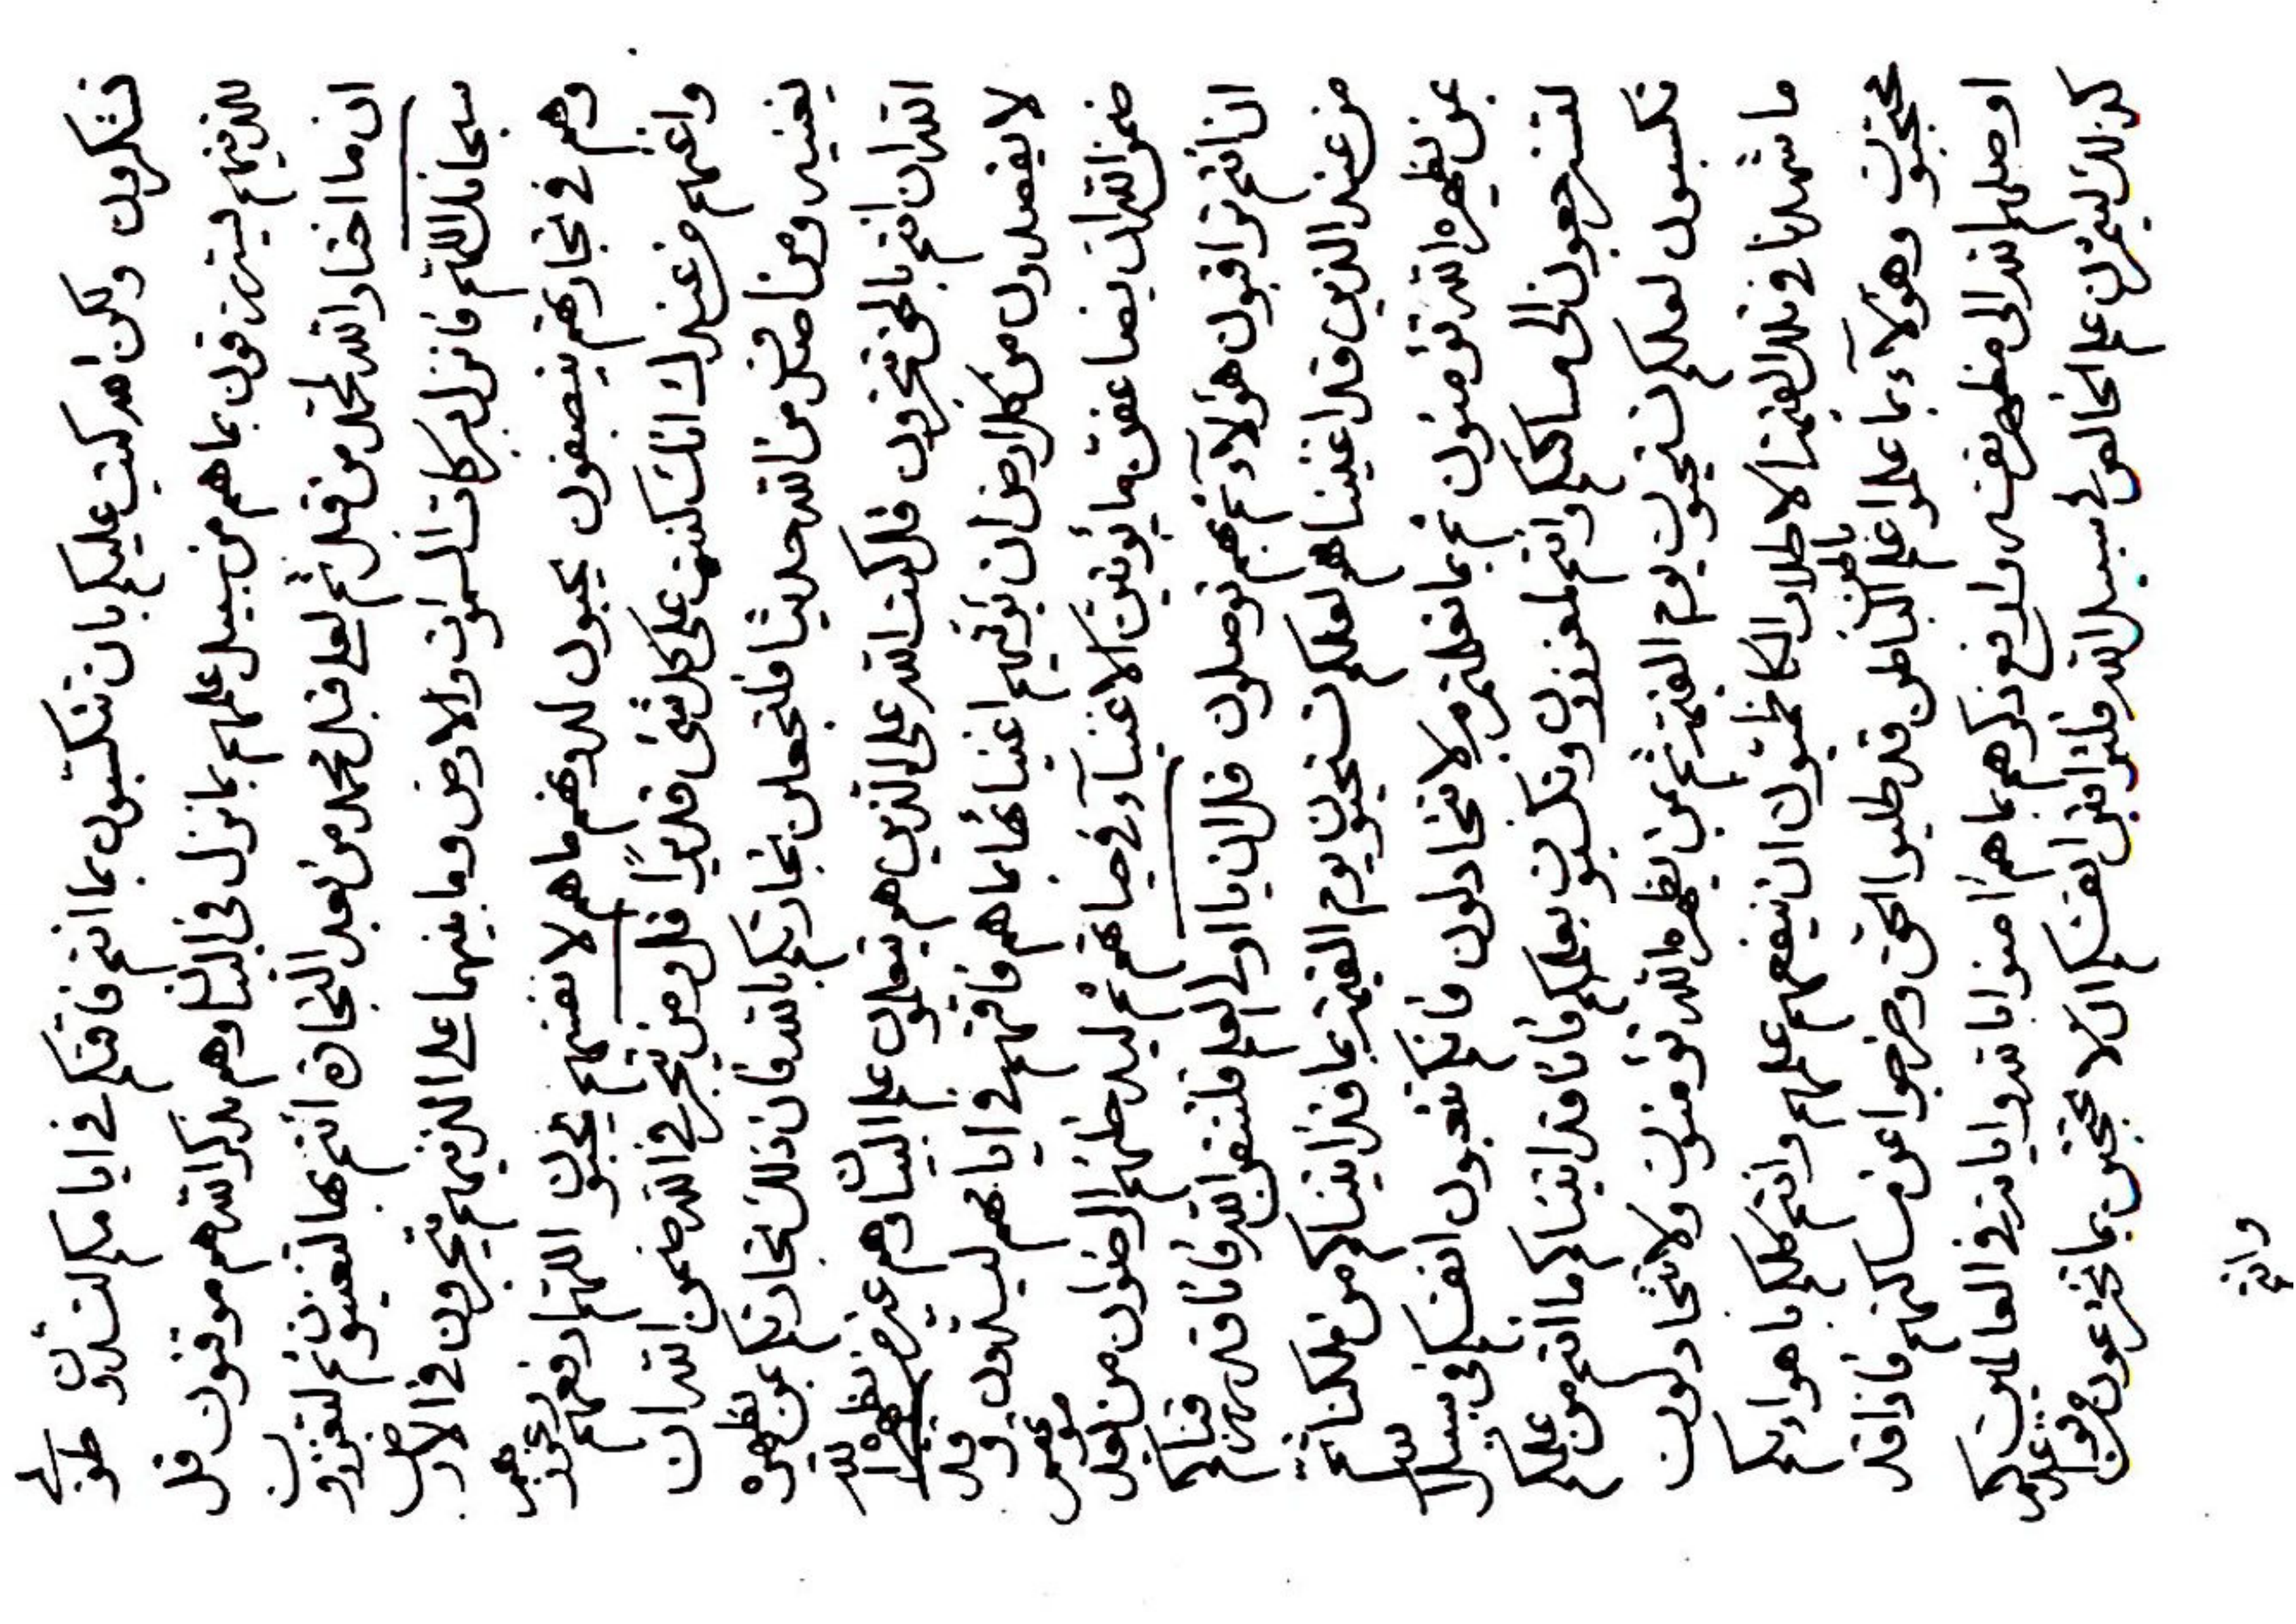 تشكرون ولكن اهد كتب عليكم بان تتكسبون بما انتم فاقتكم في ايامكم لتسدون طوبى
للذينهم يسترزقون بما هم من سبيل علمهم بما نزل في البيان وهم بذكر الله هم موقنون قل
ان ما اختار الله لمحمد من قبل ثم لعلي قبل محمد من بعد التجارة انتم بها لتغنيون ثم لتعززون
سبحانك اللهم فانزل بركات السموات والارض وما بينهما على الذينهم يتجرون في الارض
وهم في تجارتهم ينصفون يحبون لدونهم ما هم لانفسهم يحبون اللهم ارفعهم
واغنهم من عندك انك كنت على كل شيء قديرا قل ومن يتجر في الله ضمن الله ان
يغنيه ومن اصدق من الله حديثا فلتجعلن تجارتكم بالله فان ذلك تجارتكم عن يظهره
الله ان انتم بالحق تتجرون قل كتب الله على الذين هم يتعلمون علم البيان وهم عند من يظهره الله
لا يفصلون من كل ارض ان يؤتيهم اغنيائها بما هم فاقتهم في ايامهم ليسدون وقد
ضمن الله ان يضاعفن ما يؤتين الاغنياء في حياتهم ثم ليدخلنهم الرضوان من بعد موتهم
ان انتم تراقبون هؤلاء ثم بهم توصلون قل ان يا اولي العلم فلتتقن الله فانا قد رزقناكم
من عند الذين قد اغنيناهم لعلكم تستحيون يوم القيمة بما قد اتيناكم من ملكنا ثم
عن يظهره الله تؤمنون ثم بما تعلمتم لا تجادلون فانكم تتعبون انفسكم في سبيل الله
لتسترجعون الى مساكنكم وانتم لمعززون وتكسبون بعلمكم فانا قد اتيناكم ما انتم من علمكم
تكسبون لعلكم تستحيون يوم القيمة ثم بمن يظهره الله تؤمنون ولا تجادلون
ما شهدنا في تلك القيمة الا طلاب الكاظميون ان ينفعهم علمهم وانتم كلكم باهوائكم
محتجبون وهؤلاء بما علموا علم الباطن بالحق قد طلبوا الحق وخرجوا عن مساكنهم فاذا قد
اوصلهم الله الى مظهر نفسه وارفع ذكرهم بما هم امنوا بالله واياته في العالمين
كذلك ليميزن علم الخالص في سبيل الله فلتراقبن انفسكم الا تحتجبن بما تخترعون من عندكم
وانتم